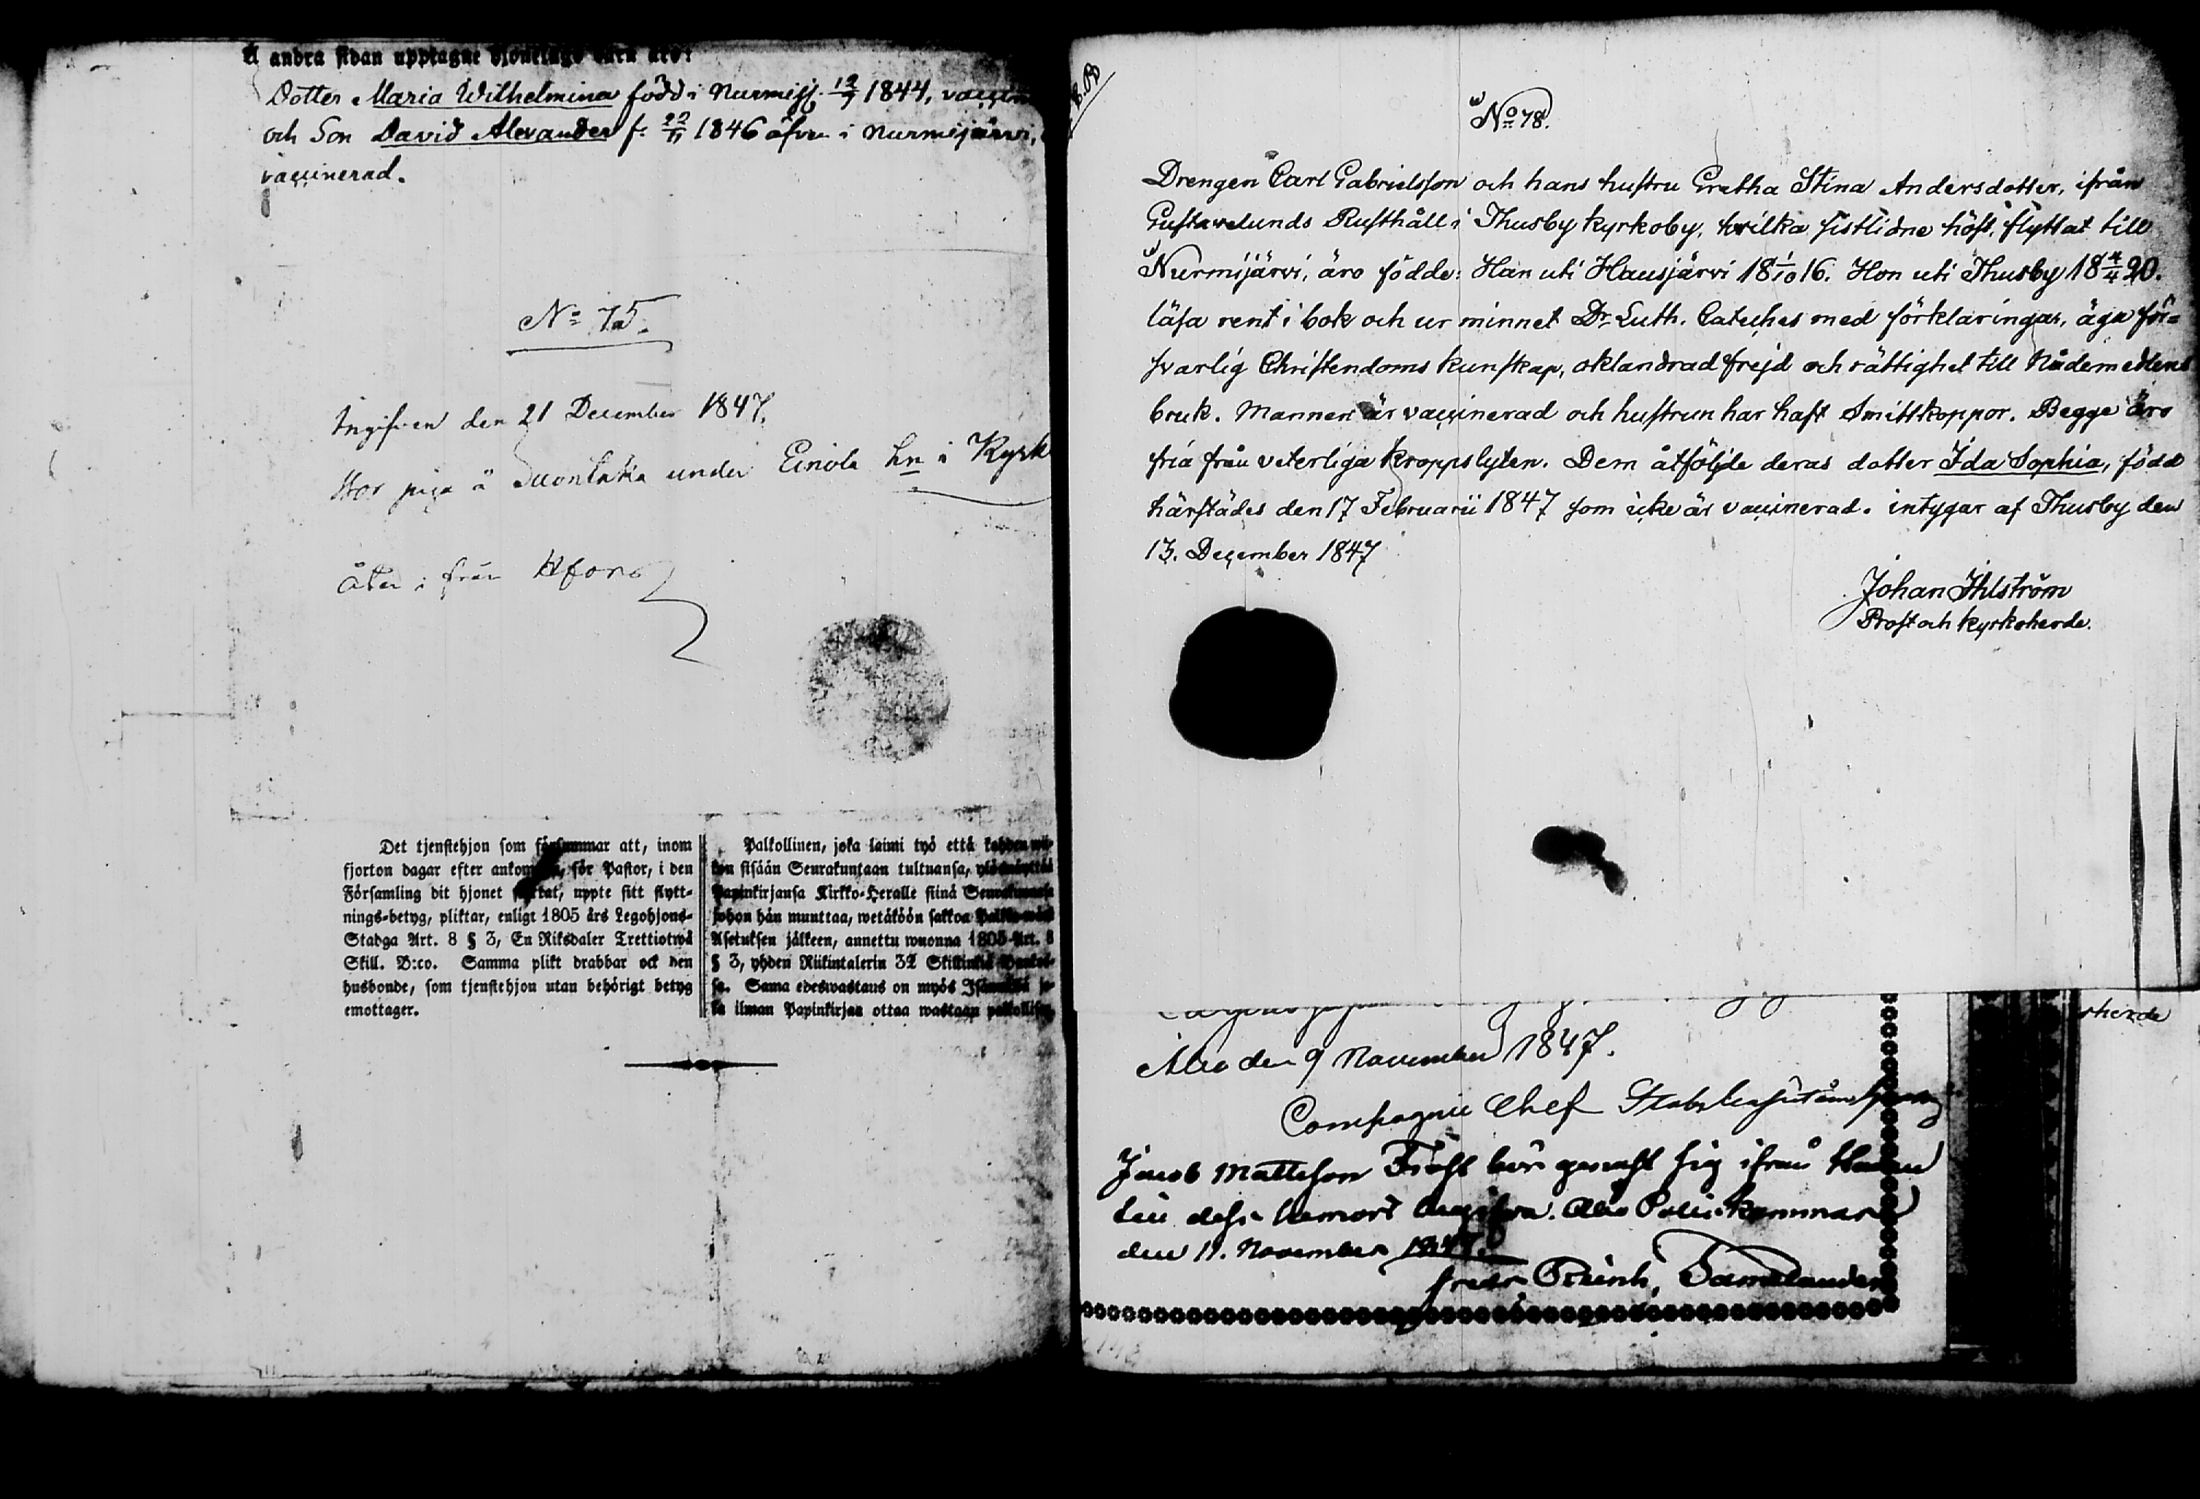 å andra sidan upptagne
Dotter Maria Wilhelmina född i Nurmisjj. 12/7 1844, vaccin
och Son David Alexander f. 22/11 1846 äfven i Nurmisjärvi,
vaccinerad.
No 75.
Ingifven den 21 December 1847.
Hos piga å Suontaka under Einola hn i Kyrk
Åter ifrån
Det tjenstehjon som försummar att, inom
fjorton dagar efter ankomsten, för Pastor, i den
Församling dit hjonet flyttat, uppte sitt flytt-
nings-betyg, pliktar, enligt 1805 års Legohjons-
Stadga Art. 8 § 3, En Riksdaler Trettiotwå
Skill. B:co. Samma plikt drabbar ock den
husbonde, som tjenstehjon utan behörigt betyg
emottager.
Palkollinen, joka laimi työ että kahden wii-
kon sisään Seurakuntaan tultuansa, ylösnäyttää
Papinkirjansa Kirkko-Heralle siinä Seurakunnassa
johon hän muuttaa, wetäköön sakkoa Palkkawäen
Asetuksen jälkeen, annettu wuonna 1805 Art. 8
§ 3, yhden Riikintalerin 32 Skillinkiä Bankos-
sa. Sama edeswastaus on myös Isännällä jo-
ka ilman Papinkirjaa ottaa wastaan palkollisen.
No 78.
Drengen Carl Gabrielsson och hans hustru Gretha Stina Andersdotter, ifrån
Gustavelunds Rusthåll i Thusby kyrkoby, hvilka sistlidne höst, flyttat till
Nurmijärvi, äro födde: Han uti Hausjärvi 18 1/10 16. Hon uti Thusby 18 4/4 20.
läsa rent i bok och ur minnet Dr Luth. Catches med förklaringar, äga för=
svarlig Christendoms kunskap, oklandrad frejd och rättighet till Nådemedlens
bruk. Mannen är vaccinerad och hustrun har haft Smittkoppor. Begge äro
fria från veterliga kroppslyten. Dem åtföljde deras dotter Ida Sophia, född
härstädes den 17 Februarii 1847 som icke är vaccinerad. intygar af Thusby den
13. December 1847
Johan Ihlström
Prost och kyrkoherde.
rherde
Åbo den 9 November 1847.
Compagnie Chef
Jacob Mattsson Frost bör genast sig ifrån Staden
till dess hemort begifva. Åbo Poliskammare
den 11. November 1847.